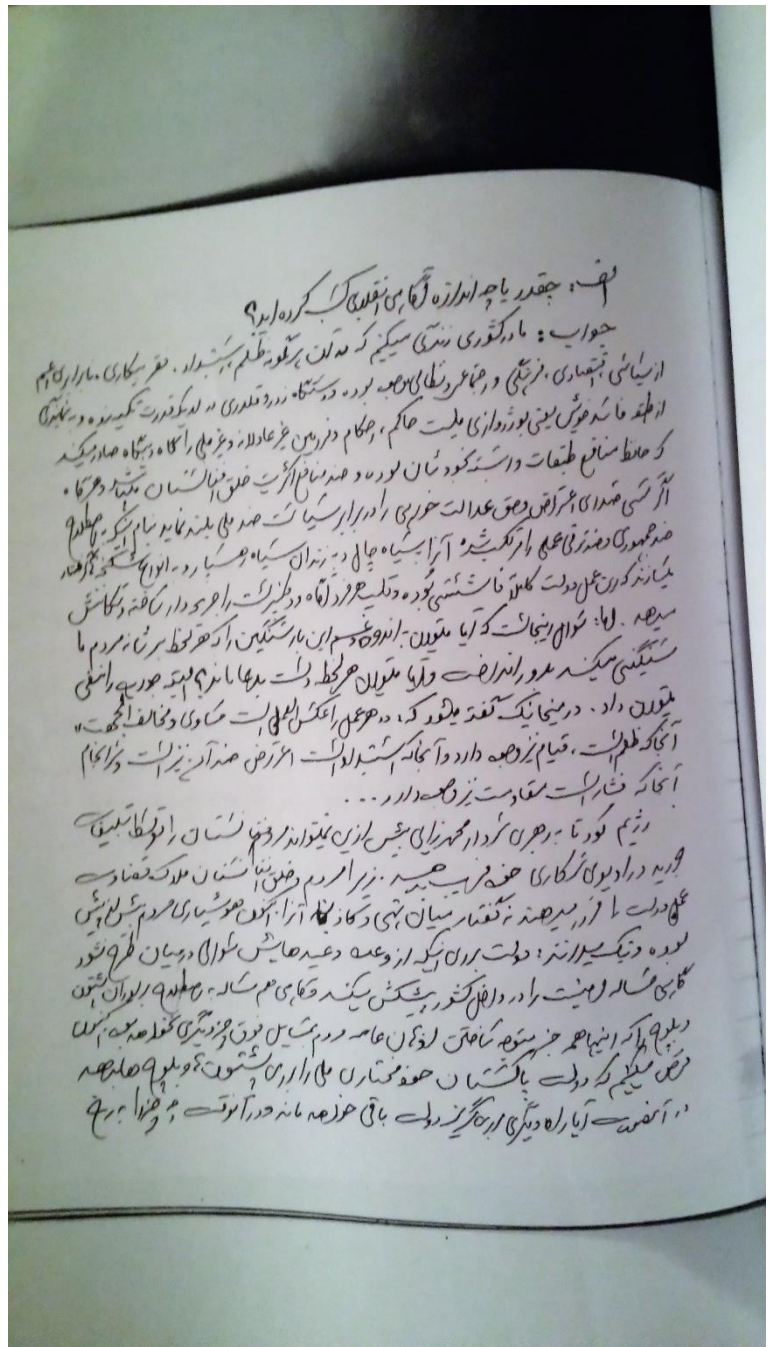 الف: چقدر یا چه اندازه آگاهی انقلابی کسب کرده اید؟
جواب: ما در کشوری زندگی میکنیم که در آن هرگونه ظلم، استبداد، فقر بیکاری، نابرابری اعم
از سیاسی، اقتصادی، فرهنگی و اجتماعی و نظامی موجود بوده و دستگاه زور و قلدری در اریکه قدرت تکیه زده و به نمایندگی
از طبقه فاسد خویش یعنی بورژوازی ملیت حاکم، احکام و فرامین غیر عادلانه و غیر ملی را گاه و بیگاه صادر میکند
که حافظ منافع طبقات وابسته بخودشان بوده و ضد منافع اکثریت خلق افغانستان میباشد و هرگاه
اگر کسی صدای اعتراض و حق عدالت خواهی را در برابر سیاست ضد ملی بلند نماید بنام اینکه به اصطلاح
ضد جمهوری و ضد ترقی عملی را مرتکب شده آنرا به سیاه چال و به زندان سیاه رهسپار و به انواع شکنجه ها گرفتار
میسازند که این عمل دولت کاملاً فاشیستی بوده و هر فرد آگاه و وطنپرست را جریحه دار ساخته و تکانش
میدهد. اما: سوال اینجاست که آیا میتوان به اندوه و غم این بار سنگین را که هر لحظه بر شانه مردم ما
سنگینی میکند بدور انداخت و آیا میتوان هر لحظه دست بدعا ماند؟ البته جواب را منفی
میتوان داد. در میخانیک گفته میشود که: «هر عمل را عکس العملی است مساوی و مخالف الجهت»
آنجا که ظلم است، قیام نیز وجود دارد و آنجا که استبداد است اعتراض ضد آن نیز است و سرانجام
آنجا که فشار است مقاومت نیز وجود دارد...
رژیم کودتا به رهبری سردار محمدزایی بیش ازین نمیتواند مردم افغانستان را توسط تبلیغات
جریده و رادیوی سرکاری خود فریب بدهد. زیرا مردم و خلق افغانستان ملاک قضاوت
عمل دولت را قرار میدهند نه گفتار میان تهی و کاذبانه آنرا. اکنون هوشیاری مردم بیش از پیش
بوده و نیک میدانند: دولت برای اینکه از وعده و وعید هایش سوالی در میان طرح نشود
گاهی مساله امنیت را در داخل کشور پیشکش میکند و گاهی هم مساله به اصطلاح برادران پشتون
و بلوچ را که اینها همه جز متوجه ساختن اذهان عامه مردم به مسایل فوق چیز دیگری نخواهد بود. اکنون
فرض میکنیم که دولت پاکستان خود مختاری ملی را برای پشتون ها و بلوچ ها بدهد
در آنصورت آیا راه دیگری برای گریز دولت باقی خواهد ماند و در آنوقت چه چیز را به رخ